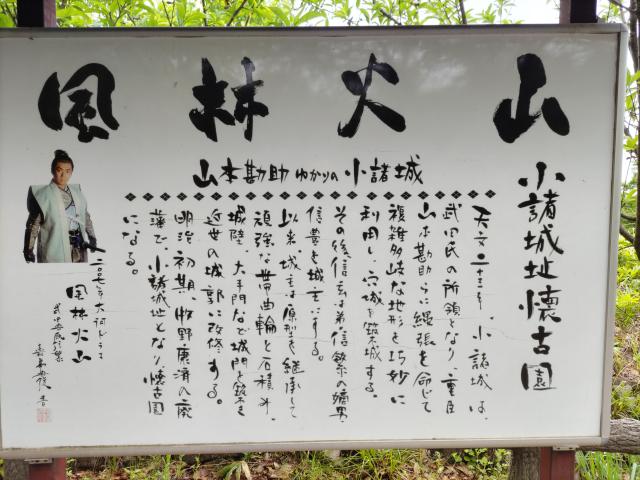 風林火山
小諸城址懐古園
山本勘助ゆかりの小諸城
天文二十三年、小諸城は、
武田氏の所領となり、重臣
山本勘助らに縄張を命じて
複雑多岐な地形を巧妙に
利用し、穴城を築城する。
その後信玄は弟信繁の嫡男、
信豊を城主にする。
以来城主は原型を継承して
頑強な帯曲輪と石積み、
城陸、大手門など城門を築き
近世の城郭に改修する。
明治初期、牧野康済の廃
藩で、小諸城址となり懐古園
になる。
二〇〇七年大河ドラマ
風林火山